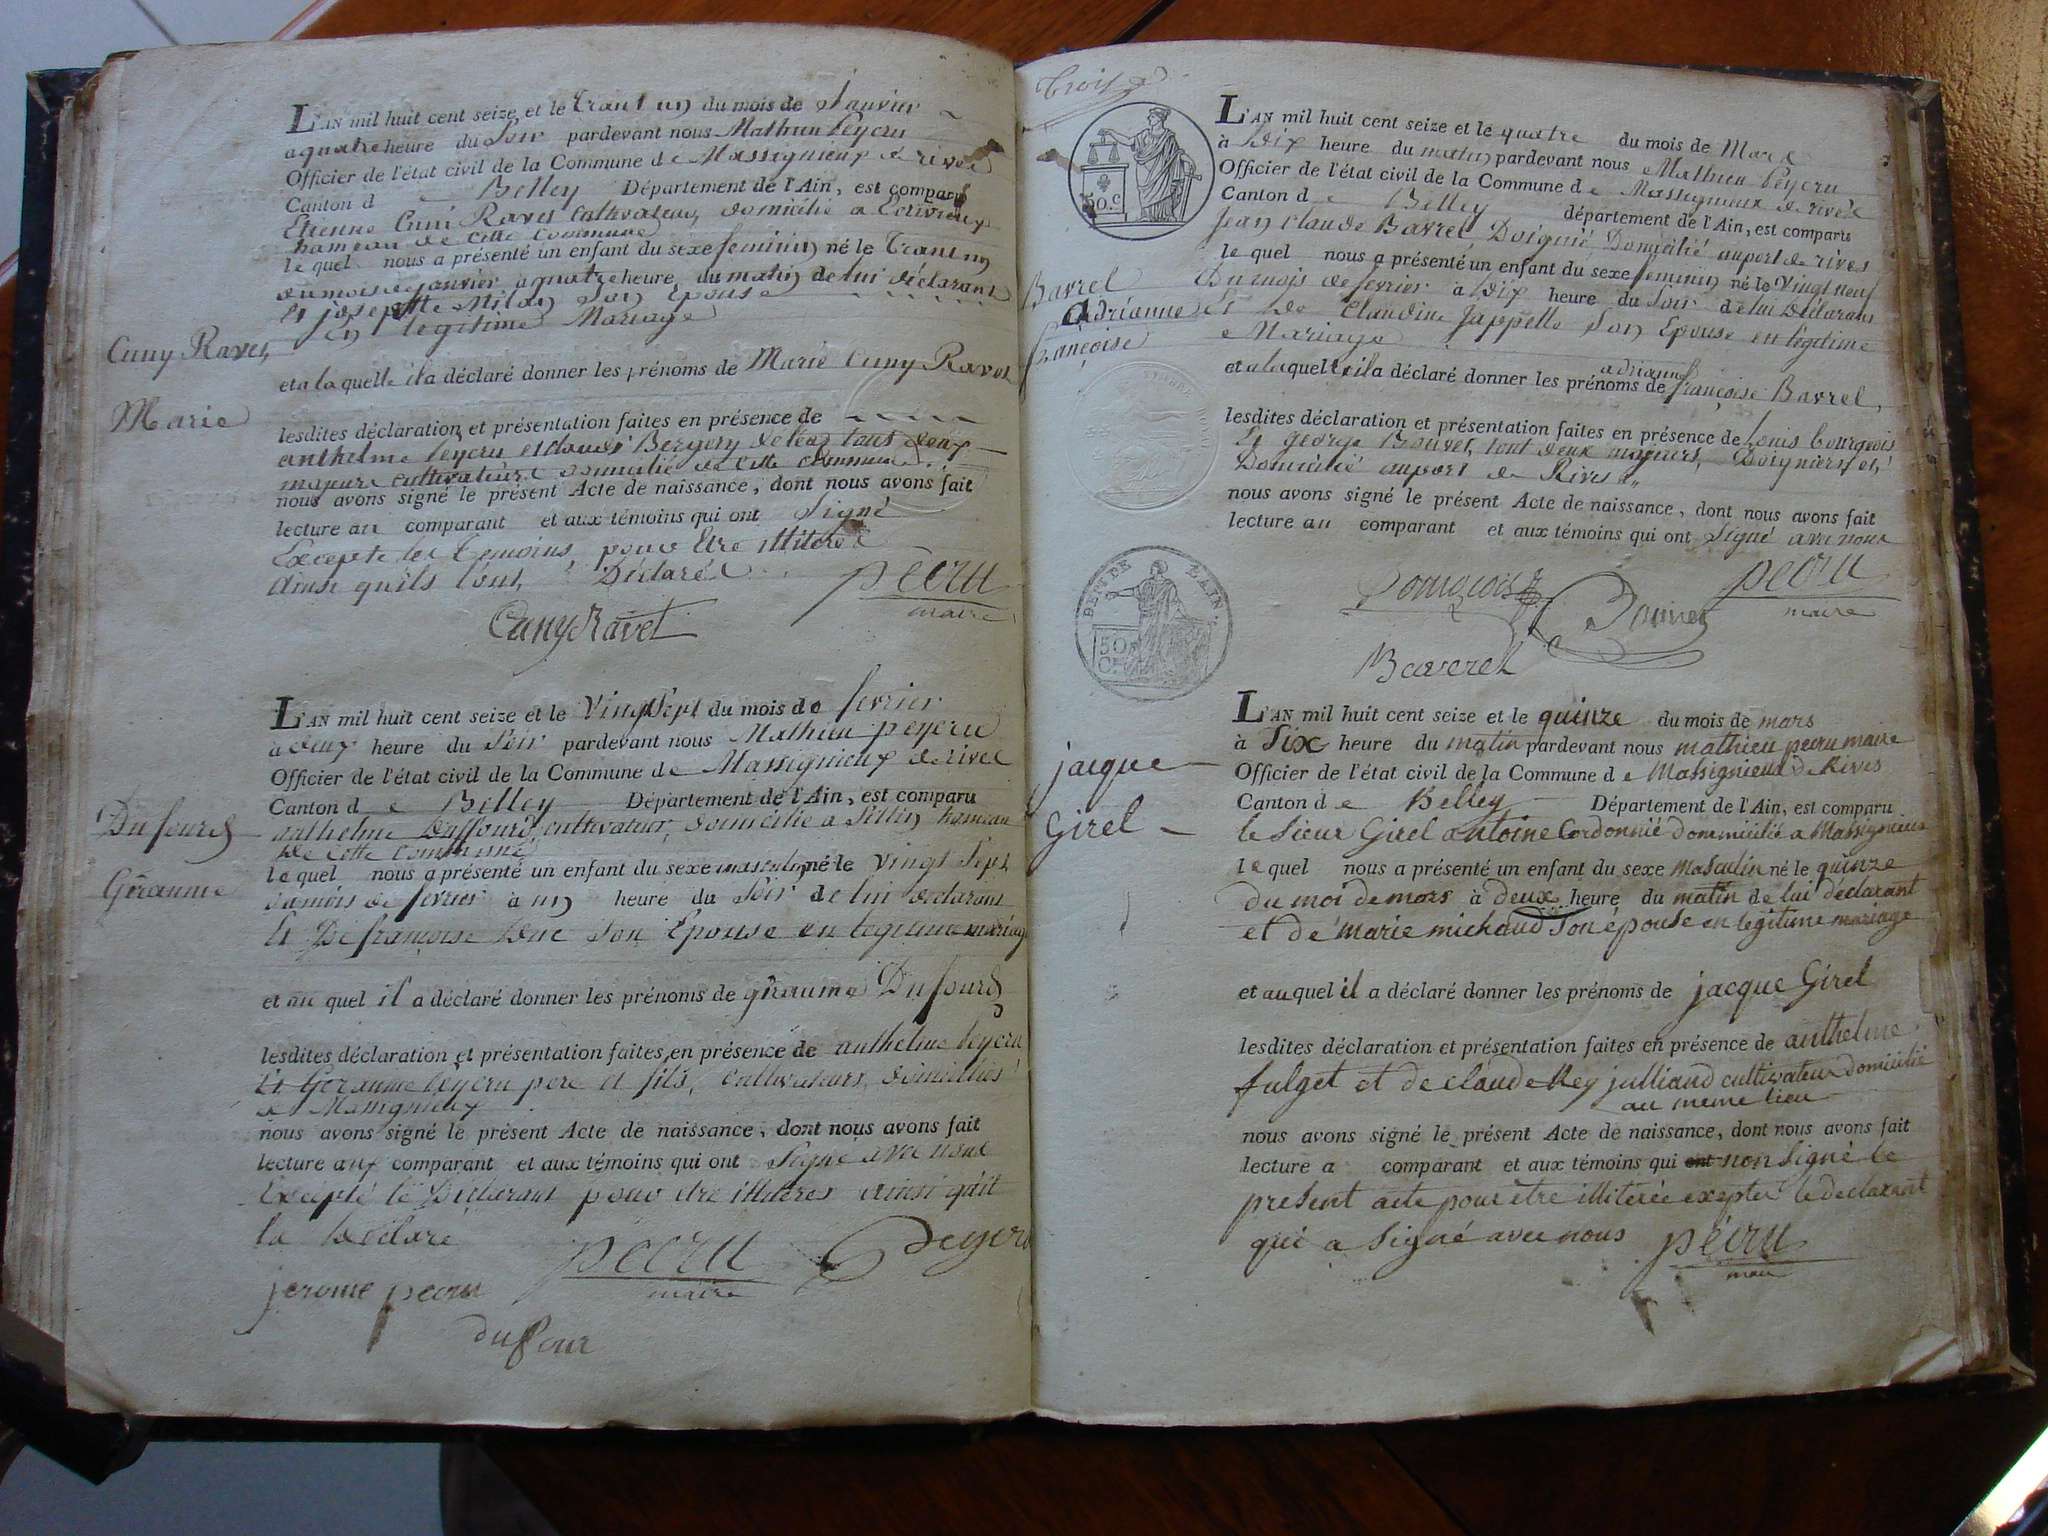 L'AN mil huit cent seize, et le Trant un du mois de Janvier
a quatre heure du Soir pardevant nous Mathieu Peycru
Officier de l'état civil de la Commune de Massignieux de rives
Canton de Belley Département de l'Ain, est comparu
Etienne Cuni Ravet Cultivateur, domicilié a Ecrivieux
hameau de cette Commune
le quel nous a présenté un enfant du sexe feminin né le Trant un
du mois de janvier a quatre heure du matin de lui déclarant
Et josephtte Milan Son Epouse
En legitime Mariage
Cuny Ravet
et a la quelle il a déclaré donner les prénoms de Marie Cuny Ravet
Marie
lesdites déclaration et présentation faites en présence de
anthelme peycru et claude Bergery tous deux
majeurs cultivateurs domicilié de cette Commune
nous avons signé le présent Acte de naissance, dont nous avons fait
lecture au comparant et aux témoins qui ont Signé
Excepte les Temoins pour Etre illiteré
Ainsi quils l'ont Déclaré
pecru
maire
Cuny Ravet
L'AN mil huit cent seize et le Vingt Sept du mois de fevrier
a deux heure du Soir pardevant nous Mathieu peycru
Officier de l'état civil de la Commune de Massignieux de rives
Canton de Belley Département de l'Ain, est comparu
anthelme Duffourd cultivateur, domicilié a Sillin hameau
de cette commune
Dufourd
le quel nous a présenté un enfant du sexe masculin né le Vingt Sept
Géraume
du mois de fevrier à un heure du Soir de lui declarant
Et De françoise Duc Son Epouse en legitime mariage
et au quel il a déclaré donner les prénoms de géraume Dufourd
lesdites déclaration et présentation faites en présence de anthelme peycru
Et Geraume peycru pere et fils, cultivateurs, domicilies
a Massignieux
nous avons signé le présent Acte de naissance, dont nous avons fait
lecture aux comparant et aux témoins qui ont Signé avec nous
Excepté le Déclarant pour etre illiteres ainsi quil
la Déclaré
pecru
maire
Peycru
jerome pecru
dufour
Trois
50. C
L'AN mil huit cent seize et le quatre du mois de Mars
à Dix heure du matin pardevant nous Mathieu Peycru
Officier de l'état civil de la Commune de Massignieux de rives
Canton de Belley département de l'Ain, est comparu
Jean Claude Bavrel, Doignié, Domicilié au port de rives
le quel nous a présenté un enfant du sexe feminin né le Vingt neuf
Bavrel
Du mois de fevrier à Dix heure du Soir de lui Déclarant
adrianne
Et De Claudine Jappello Son Epouse en légitime
françoise
Mariage
adrianne
et a la quelle il a déclaré donner les prénoms de françoise Bavrel,
lesdites déclaration et présentation faites en présence de Louis bourgeois
Et george Bouvet, tout deux majeurs, Doigniers et,
Domicilié au port de Rives
nous avons signé le présent Acte de naissance, dont nous avons fait
lecture au comparant et aux témoins qui ont Signé avec nous
Bourgeois
Bouvet
pecru
maire
Baverel
DEPT DE L'AIN
50 C.
L'AN mil huit cent seize et le quinze du mois de mars
à Six heure du matin pardevant nous mathieu pecru maire
jacque
Officier de l'état civil de la Commune de Massignieux de Rives
Canton de Belley Département de l'Ain, est comparu
Girel
le Sieur Girel antoine Cordonnié domicilié a Massignieux
le quel nous a présenté un enfant du sexe masculin né le quinze
du moi de mars à deux heure du matin de lui declarant
et de marie michaud son épouse en legitime mariage
et au quel il a déclaré donner les prénoms de jacque Girel
lesdites déclaration et présentation faites en présence de anthelme
fulget et de claude Rey julliand cultivateur domicilié
au meme lieu
nous avons signé le présent Acte de naissance, dont nous avons fait
lecture a comparant et aux témoins qui ont non Signé le
present acte pour etre illiterée excepter le declarant
qui a Signé avec nous pecru
maire